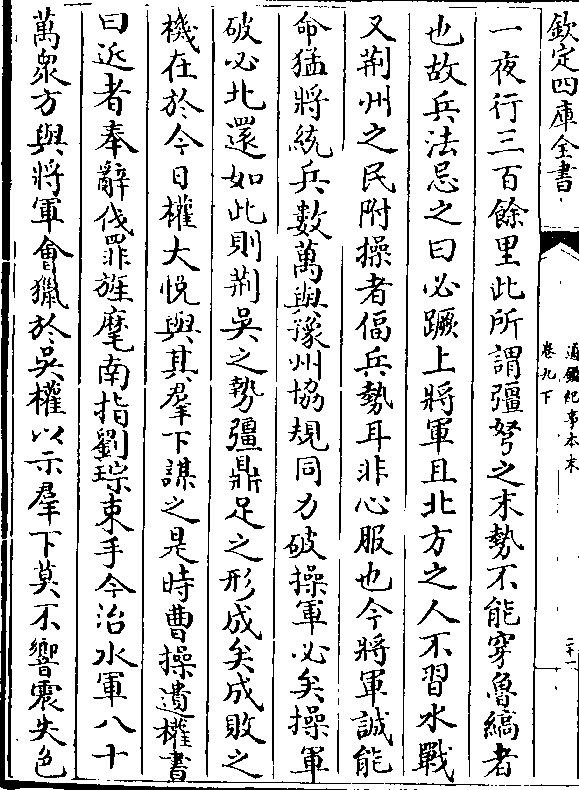 欽定四庫全書
通鑑紀事本末
卷九下
二十一
一夜行三百餘里此所謂彊弩之末勢不能穿魯縞者
也故兵法忌之曰必蹶上將軍且北方之人不習水戰
又荆州之民附操者偪兵勢耳非心服也今將軍誠能
命猛將統兵數萬與豫州協規同力破操軍必矣操軍
破必北還如此則荆吳之勢彊鼎足之形成矣成敗之
機在於今日權大悅與其羣下謀之是時曹操遺權書
曰近者奉辭伐罪旌麾南指劉琮束手今治水軍八十
萬衆方與將軍會獵於吳權以示羣下莫不響震失色